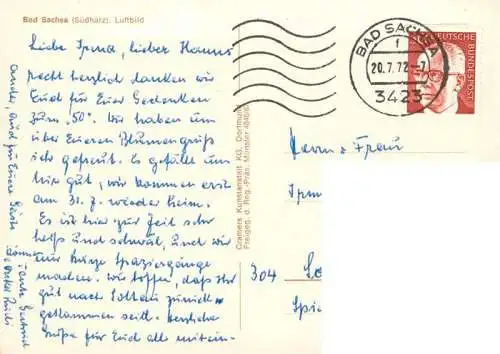 Bad Sachsa (Südharz). Luftbild
Liebe Irma, lieber Hanns
recht herzlich danken wir
Euch für Euer Gedenken
zum "50". Wir haben uns
über Eueren Blumengruß
sehr gefreut. Es gefällt uns
hier gut, wir kommen erst
am 31.7. wieder heim.
Es ist hier zur Zeit sehr
heiß und schwül, und wir
nur kurze Spaziergänge
machen. Wir hoffen, daß Ihr
gut nach Soltau zurück-
gekommen seid. Herzliche
Grüße für Euch alle mitein-
ander, auch für Euere
Tante Gertrud
Cramers Kunstanstalt KG, Dortmund
Freigeg. d. Reg.-Präs. Münster
BAD SACHSA
f
20.7.72-7
3423
DEUTSCHE
BUNDESPOST
Herrn u Frau
Irm
304 So
Spie